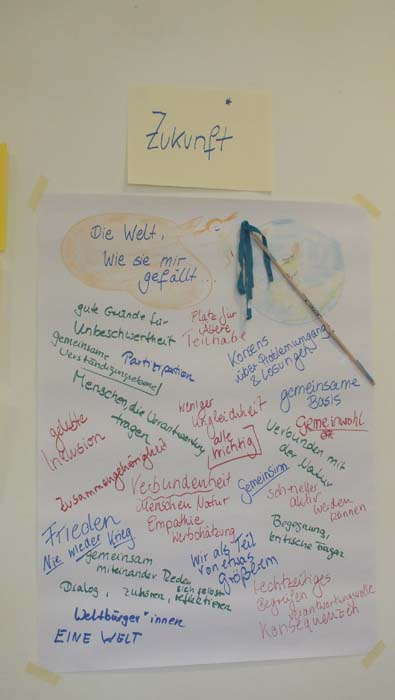 Zukunft*
Die Welt,
Wie sie mir
gefällt...
gute Gründe für
Unbeschwertheit
Platz für
Ältere,
Teilhabe
gemeinsame
Verständigungsebene
Partizipation
Konsens
über Problemumgang
& Lösungen
Menschen, die Verantwortung
tragen
weniger
Ungleichheit
gemeinsame
Basis
gelebte
Inklusion
alle
wichtig
Gemeinwohl
Verbunden mit
der Natur
Zusammengehörigkeit
Verbundenheit
Menschen Natur
Gemeinsinn
schneller
aktiv
werden
können
Empathie
Wertschätzung
Frieden
Nie wieder Krieg
Begegnung,
kritische Fragen
gemeinsam
miteinander Reden
Wir als Teil
von etwas
Größerem
Dialog, zuhören, sich selbst
reflektieren
rechtzeitiges
Begreifen
verantwortungsvolle
Konsequenzen
Weltbürger*innen
EINE WELT